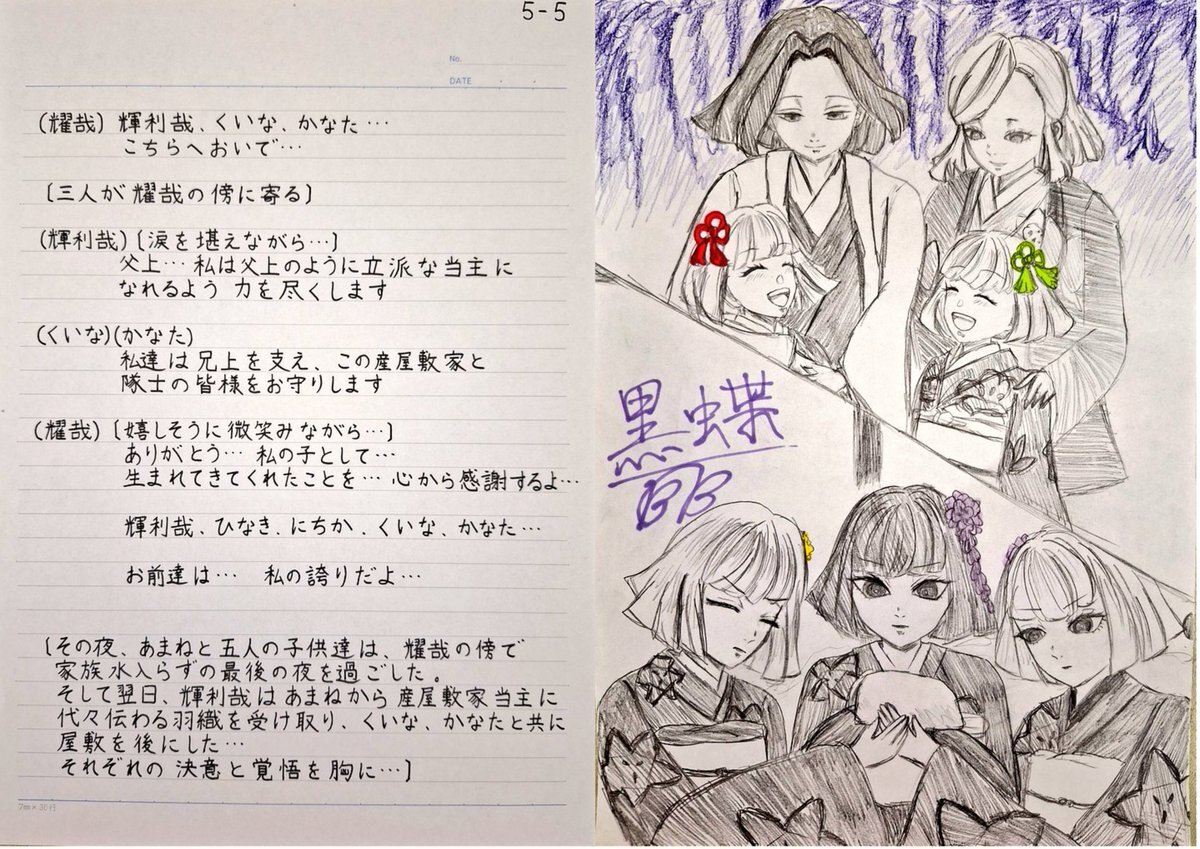 5-5
No.
DATE
(耀哉) 輝利哉、くいな、かなた…
こちらへおいで…
〔三人が耀哉の傍に寄る〕
(輝利哉)〔涙を堪えながら…〕
父上…私は父上のように立派な当主に
なれるよう 力を尽くします
(くいな)(かなた)
私達は兄上を支え、この産屋敷家と
隊士の皆様をお守りします
(耀哉)〔嬉しそうに微笑みながら…〕
ありがとう… 私の子として…
生まれてきてくれたことを… 心から感謝するよ…
輝利哉、ひなき、にちか、くいな、かなた…
お前達は… 私の誇りだよ…
〔その夜、あまねと五人の子供達は、耀哉の傍で
家族水入らずの最後の夜を過ごした。
そして翌日、輝利哉はあまねから産屋敷家当主に
代々伝わる羽織を受け取り、くいな、かなたと共に
屋敷を後にした…
それぞれの決意と覚悟を胸に…〕
7mm×30行
黒蝶